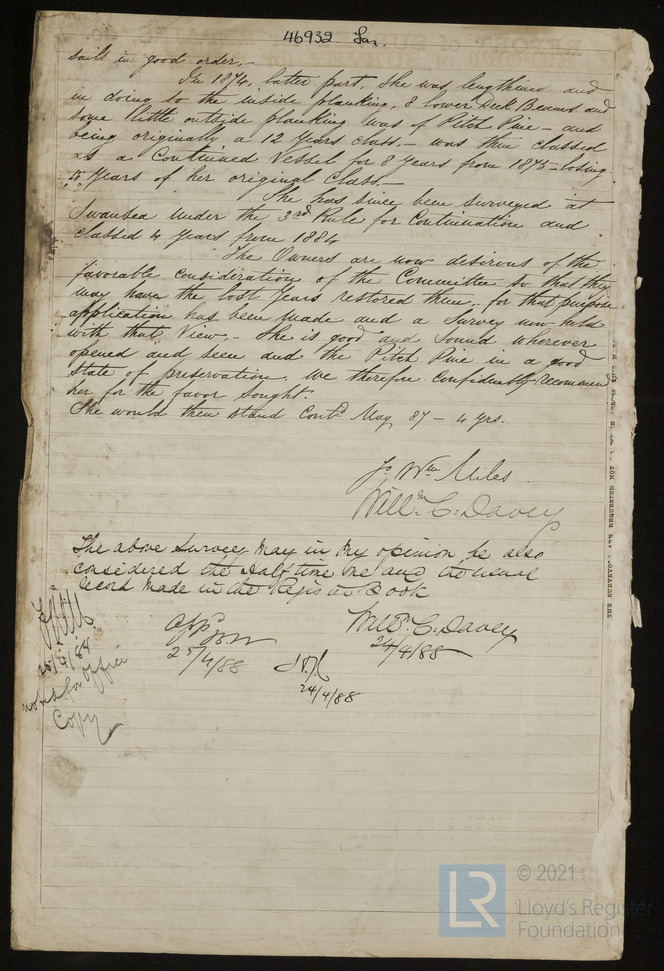 46932 Lon.
sails in good order.—
In 1874, latter part, She was lengthened and
in doing so the inside planking, 8 lower Deck Beams and
some little outside planking was of Pitch Pine — and
being originally a 12 Years class, — was then classed
as a Continued Vessel for 8 Years from 1875 — losing
Years of her original Class.—
She has since been surveyed at
Swansea under the 3rd Rule for Continuation and
classed 4 years from 1884
The Owners are now desirous of the
favorable consideration of the Committee so that they
may have the lost Years restored them, for that purpose
application has been made and a Survey now held
with that View,— She is good and Sound wherever
opened and seen and the Pitch Pine in a good
State of preservation. We therefore Confidently recommend
her for the favor sought.
She would then stand Contd May 87 — 4 yrs.
Wm Miles
Willm C. Davey
The above Survey May in My opinion be also
considered the Half time one and the usual
record Made in the Register Book
Willm C. Davey
24/4/88
25/4/88
24/4/88
25/4/88
noted for Office
Copy
THE SURVEYORS ARE REQUESTED NOT TO
© 2021
LR
Lloyd's Register
Foundation